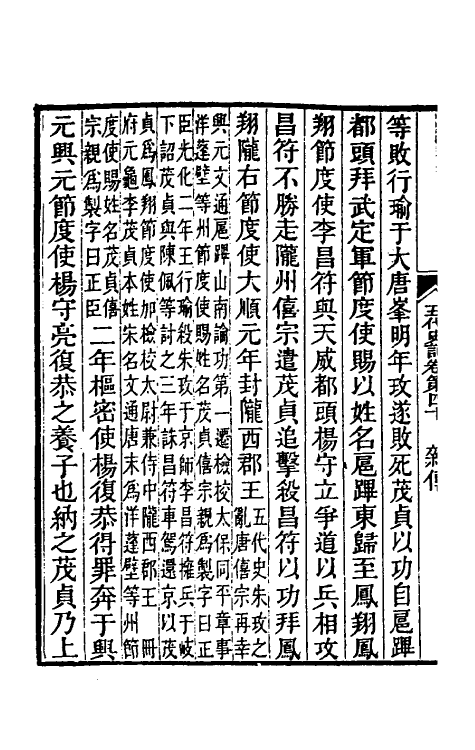 五代史記卷第四十 雜傳
等敗行瑜于大唐峯明年玫遂敗死茂貞以功自扈蹕
都頭拜武定軍節度使賜以姓名扈蹕東歸至鳳翔鳳
翔節度使李昌符與天威都頭楊守立爭道以兵相攻
昌符不勝走隴州僖宗遣茂貞追擊殺昌符以功拜鳳
翔隴右節度使大順元年封隴西郡王
五代史朱玫之
亂唐僖宗再幸
興元文通扈蹕山南論功第一遷檢校太保同平章事
洋蓬壁等州節度使賜姓名茂貞僖宗親爲製字曰正
臣光化二年王行瑜殺朱玫于京師李昌符擁兵于岐
下詔茂貞與陳佩等討之三年誅昌符車駕還京以茂
貞爲鳳翔節度使加檢校太尉兼侍中隴西郡王 冊
府元龜李茂貞本姓朱名文通唐末爲洋蓬壁等州節
度使賜姓名茂貞僖
宗親爲製字曰正臣
二年樞密使楊復恭得罪奔于興
元興元節度使楊守亮復恭之養子也納之茂貞乃上